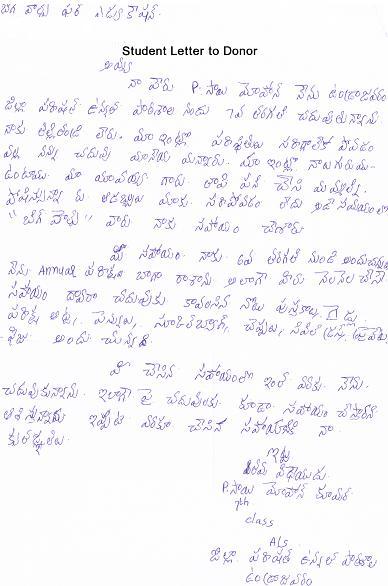 బిగ్ హెల్ప్ ఫర్ ఎడ్యుకేషన్.
Student Letter to Donor
అయ్యా
నా పేరు P. సాయి మోహన్ నేను ఉండ్రాజవరం
జిల్లా పరిషత్ ఉన్నత పాఠశాల నందు 7వ తరగతి చదువుతున్నాను.
నాకు తల్లిదండ్రి లేరు. మా ఇంట్లో పరిస్థితులు సరిగాలేక పోవడం
వల్ల నన్ను చదువు మానేయమన్నారు. మా ఇంట్లో నాలుగురు
ఉంటాము. మా మావయ్య గారు తాపీ పని చేసి మమ్మల్ని
పోషిస్తున్నారు. ఆ డబ్బులు మాకు సరిపోవడం లేదు. అదే సమయంలో
"బిగ్ హెల్ప్" వారు నాకు సహాయం చేశారు
మీ సహాయం నాకు 6వ తరగతి నుండి అందుచున్నది
నేను Annual పరీక్షలు బాగా రాశాను. అలాగే మీరు నెలనెల చేసే
సహాయం ద్వారా చదువుకు కావలసిన నోటు పుస్తకాలు,
పరీక్ష అట్ట, పెన్నులు, స్కూల్ బ్యాగ్, చెప్పులు,
ఫీజు అందు చున్నది.
మీ చేసిన సహాయంతో ఇంత వరకు నేను
చదువుకున్నాను. ఇలాగే పై చదువులకు కూడా సహాయం చేస్తారని
ఆశిస్తున్నాను ఇప్పటి వరకూ చేసిన సహాయానికి నా
కృతజ్ఞతలు
ఇట్లు
విధేయుడు
P. సాయి మోహన్ కుమార్
7th
class
జిల్లా పరిషత్ ఉన్నత పాఠశాల
ఉండ్రాజవరం